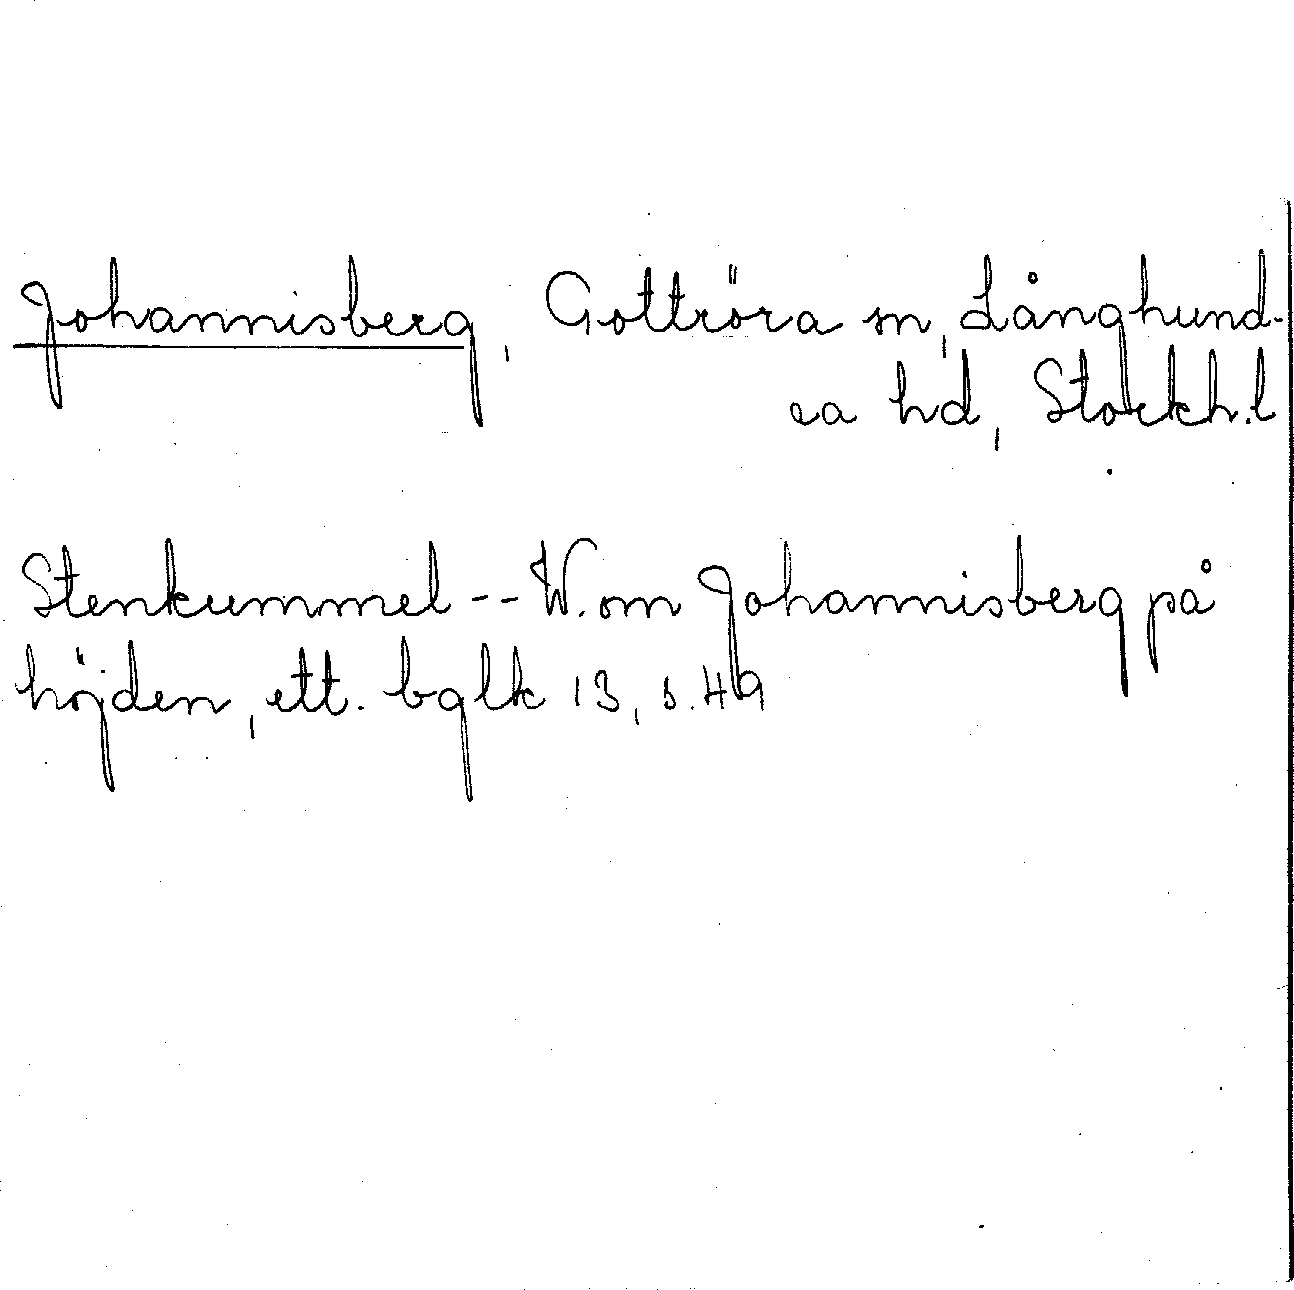 Johannisberg, Gottröra sn, Långhund-
ra hd, Stockh.l
Stenkummel -- W. om Johannisberg på
höjden, ett. bglk 13, s. 49